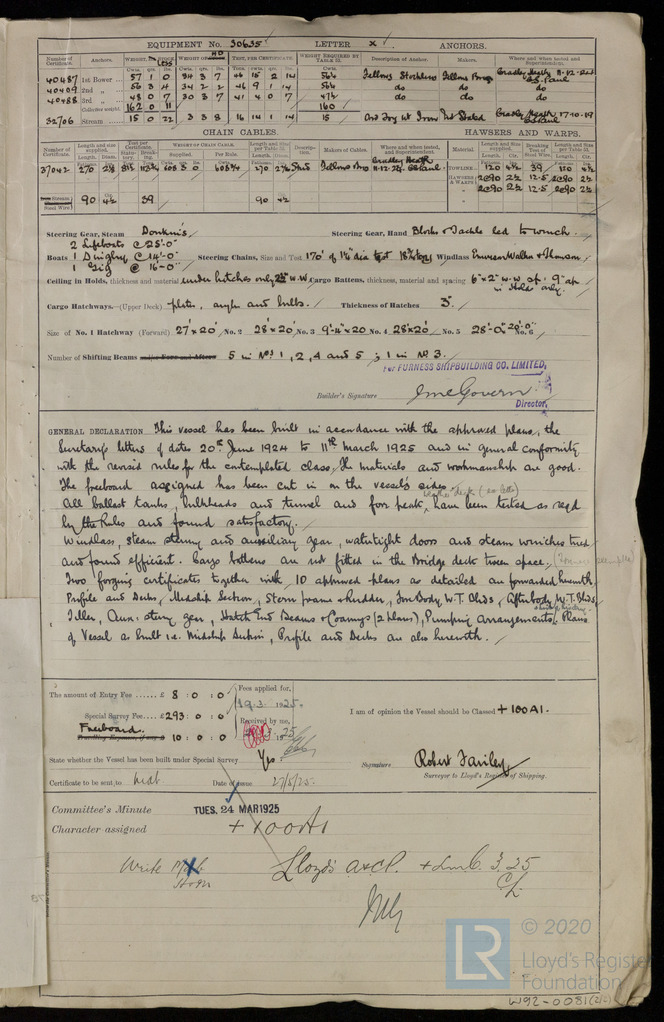 EQUIPMENT No. 30635 LETTER x ANCHORS.
Number of Certificate. Anchors. WEIGHT, LESS WEIGHT OF TEST, PER CERTIFICATE WEIGHT REQUIRED BY TABLE 31. Description of Anchor. Makers. Where and when tested, and Superintendent.
Cwts. qrs. lbs. Cwts. qrs. lbs. Tons. Cwts. qrs. lbs. Cwts.
40487 1st Bower 57 1 0 34 3 7 46 15 2 14 56¼ Fellows Stockless Fellows Bros Cradley Heath 11-12-24
40409 2nd 56 3 4 34 2 2 46 9 1 14 56¼ do do do
40488 3rd 48 0 7 30 3 7 41 4 0 7 47½ do do do
Collective weight. 162 0 11 160
32706 Stream 15 0 22 3 3 8 16 14 1 14 15 Cradley Heath 17-10-19
CHAIN CABLES. HAWSERS AND WARPS.
Number of Certificate. Length and size supplied. Test per Certificate. WEIGHT OF CHAIN CABLE. Length and Size per Table 31. Description. Makers of Cables. Where and when tested, and Superintendent. Material. Length and Size supplied. Breaking Test of Steel Wire. Length and Size per Table 31.
Length. Diam. Statutory. Breaking. Supplied. Per Rule. Length. Diam. Length. Cir.
37042 270 Stud Fellows Bros Cradley Heath 11-12-24 TOWLINE 120 4½ 39 120 4½
HAWSERS & WARPS 2@90 2½ 12·5 2@90 2½
2@90 2½ 12·5 2@90 2½
Stream Steel Wire 90 4½ 39 90 4½
Steering Gear, Steam Donkin's Steering Gear, Hand Blocks & Tackle led to winch
2 Lifeboats @ 25'-0"
Boats 1 Dinghy @ 14'-0" Steering Chains, Size and Test 170' of Windlass Emerson Walker & Thomson
1 Gig @ 16-0"
Ceiling in Holds, thickness and material under hatches only 2½" W.W. Cargo Battens, thickness, material and spacing 6"x2" w.w. sp. 9" ap.
in Holds only.
Cargo Hatchways.—(Upper Deck) plates, angles and bulbs. Thickness of Hatches 3".
Size of No. 1 Hatchway (Forward) 27'x20' No. 2 28'x20' No. 3 9'-4"x20 No. 4 28'x20' No. 5 28'-0" 20'-0" No. 6
Number of Shifting Beams 5 in Nos 1, 2, 4 and 5; 1 in No 3.
For FURNESS SHIPBUILDING CO. LIMITED,
Builder's Signature J McGovern
Director.
GENERAL DECLARATION This vessel has been built in accordance with the approved plans, the
Secretary's letters of dates 20th June 1924 to 11th March 1925 and in general conformity
with the revised rules for the contemplated class. The materials and workmanship are good.
The freeboard assigned has been cut in on the vessel's sides.
All ballast tanks, bulkheads and tunnel and fore peak, have been tested as reqd
by the Rules and found satisfactory.
Windlass, steam steering and auxiliary gear, watertight doors and steam winches tried
and found efficient. Cargo battens are not fitted in the Bridge deck tween space.
Two forging certificates together with 10 approved plans as detailed are forwarded herewith
Profile and Decks, Midship Section, Stern frame & rudder, Fore Body W.T. Blkds, Afterbody W.T. Blkds,
Tiller, Aux: steering gear, Hatch End Beams & Coamings (2 plans), Pumping arrangements. Plans
of Vessel as built i.e. Midship Section, Profile and Decks are also herewith.
The amount of Entry Fee £ 8 : 0 : 0 Fees applied for,
19.3.1925.
Special Survey Fee £293 : 0 : 0 Received by me,
Freeboard. 10 : 0 : 0
I am of opinion the Vessel should be Classed +100A1.
State whether the Vessel has been built under Special Survey Yes.
Signature Robert Fairley
Surveyor to Lloyd's Register of Shipping.
Certificate to be sent to Date of issue 27/5/25.
Committee's Minute TUES. 24 MAR 1925
Character assigned +100A1
Write
Lloyd's A&CP. + LMC. 3.25
© 2020
LR
Lloyd's Register
Foundation
W92-0081(2/2)